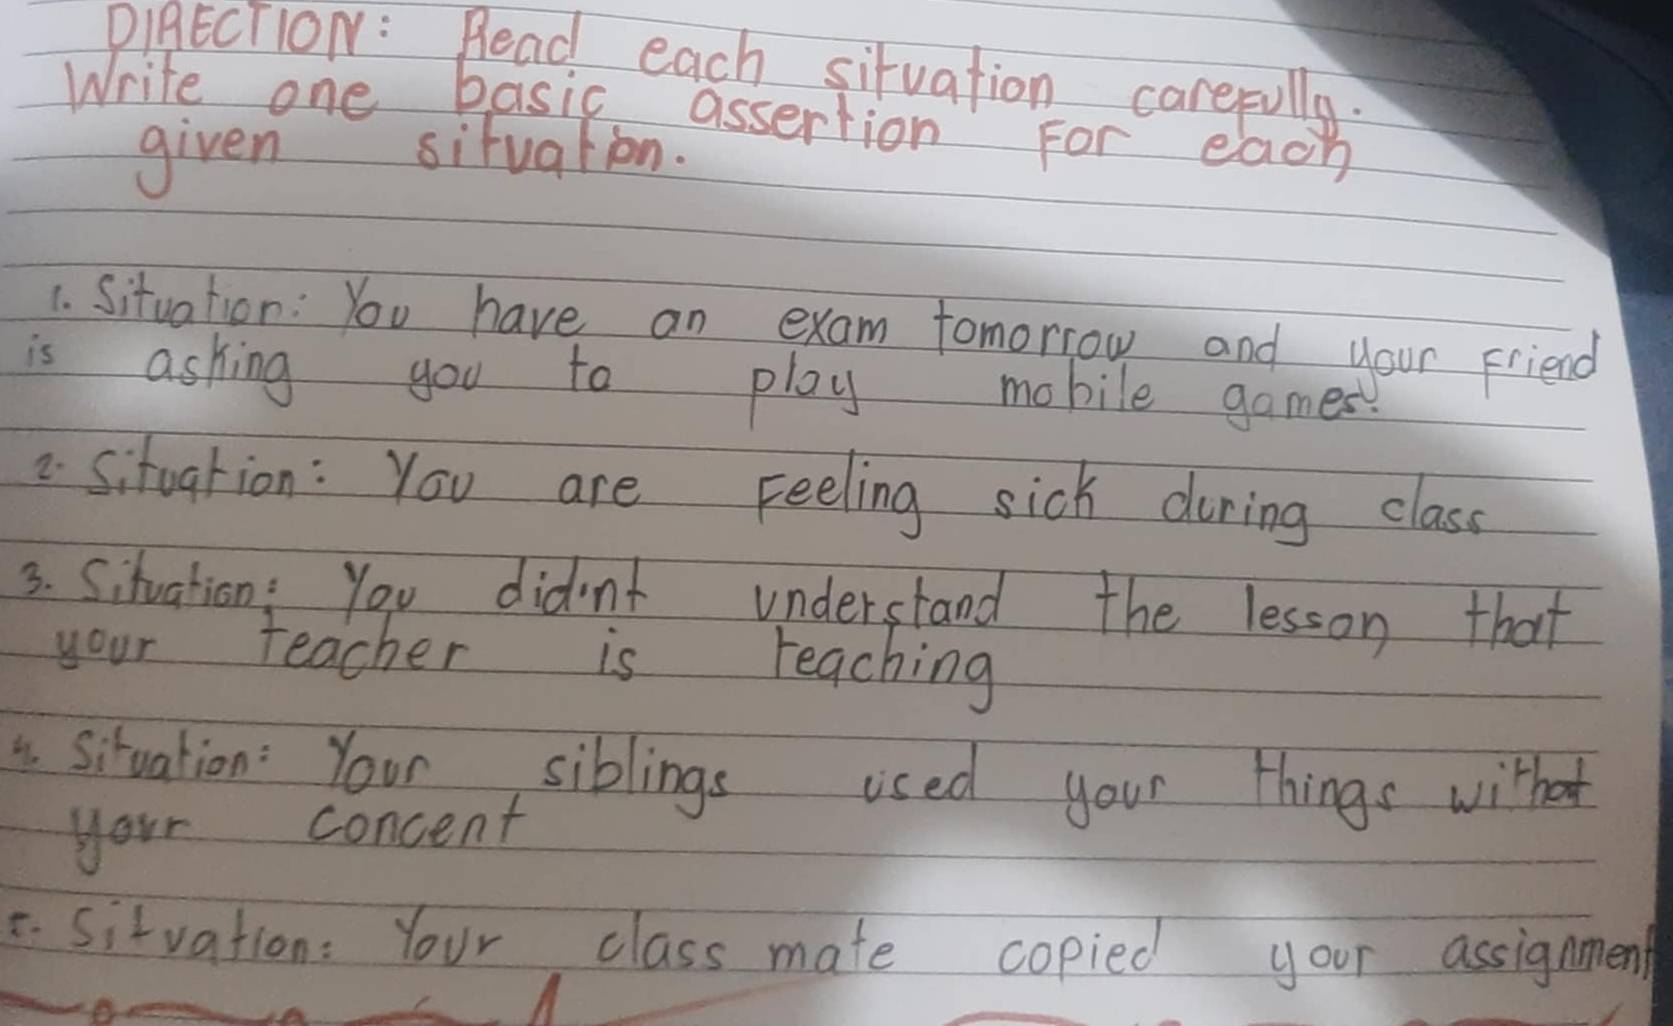 DIRECTION: Read each situation carefully.
Write one basic assertion for each
given situation.
1. Situation: You have an exam tomorrow and your friend
is asking you to play mobile games!
2. Situation: You are feeling sick during class
3. Situation: You did'nt understand the lesson that
your teacher is teaching
4. Situation: Your siblings used your things without
your concent
5. Situation: Your class mate copied your assignment